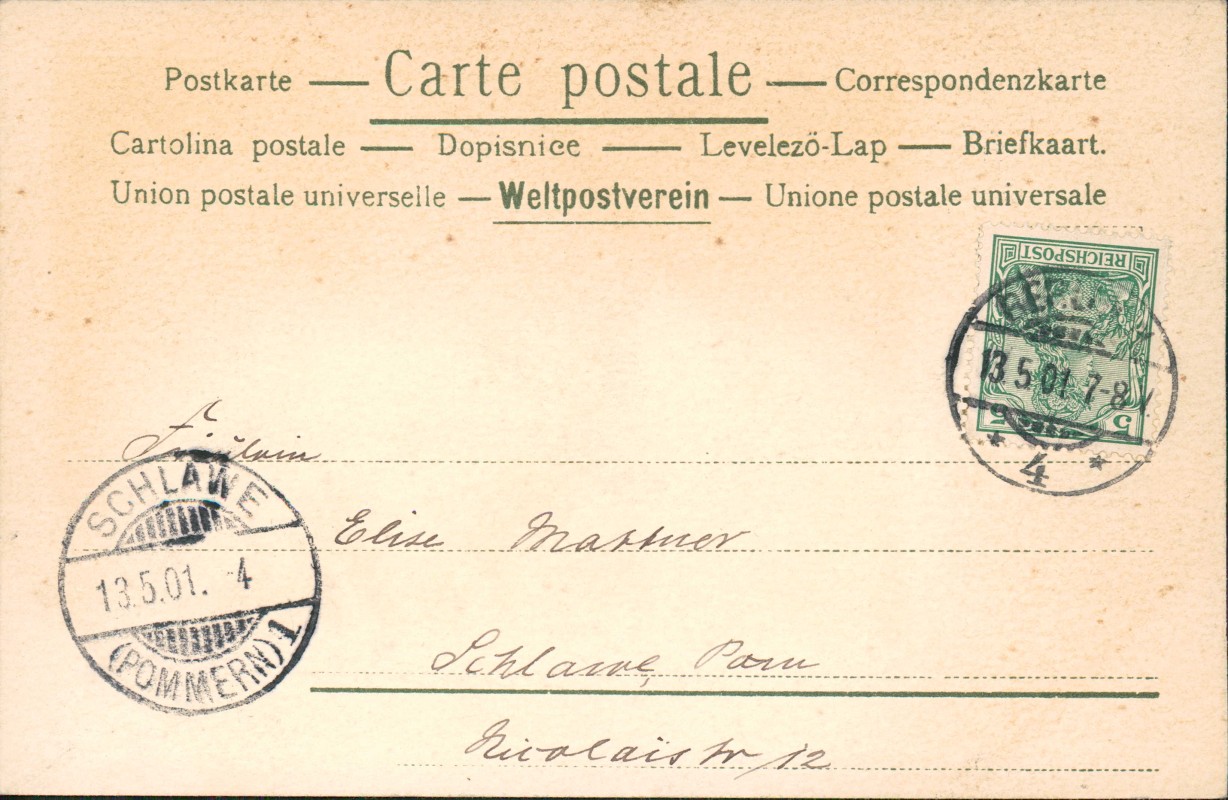 Postkarte — Carte postale — Correspondenzkarte
Cartolina postale — Dopisnice — Levelező-Lap — Briefkaart.
Union postale universelle — Weltpostverein — Unione postale universale
REICHSPOST
5
13.5.01. 7-8 V.
* 4 *
Fräulein
SCHLAWE
13.5.01. -4
(POMMERN) 1
Elise Mattner
Schlawe, Pom
Nicolaistr 12